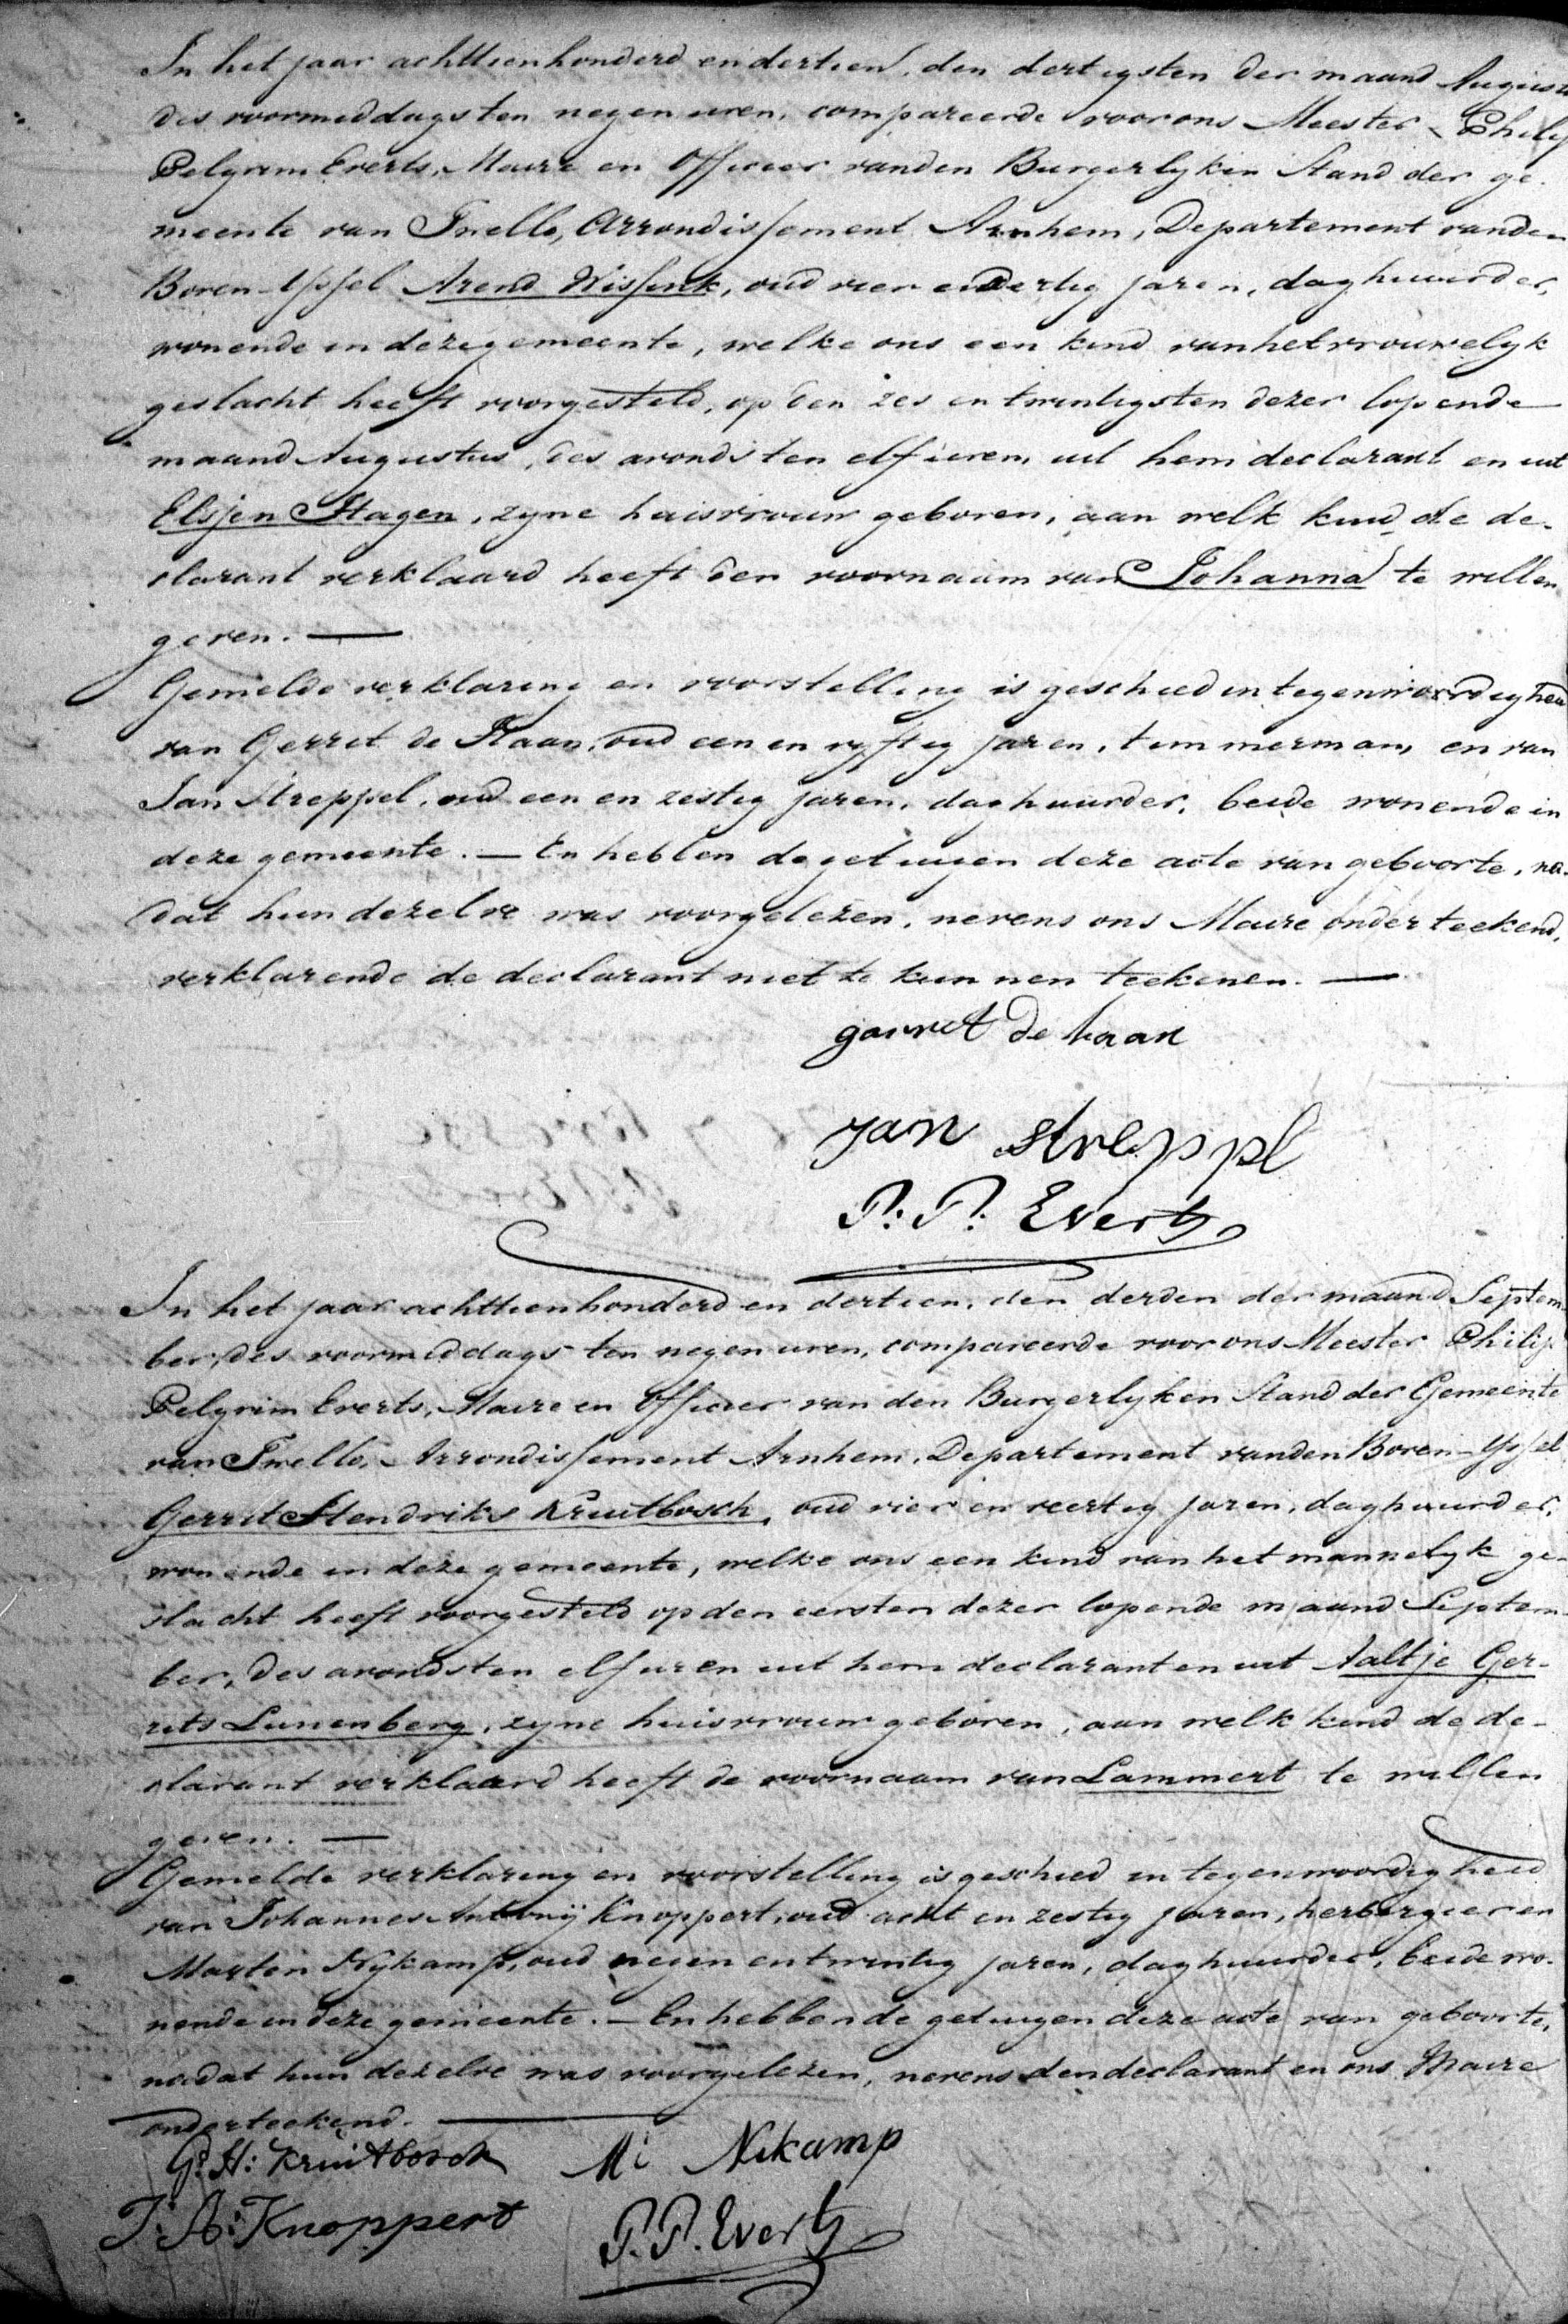 In het jaar achttienhonderd en dertien, den dertigsten der maand Augustus
des voormiddags ten negen uren, compareerde voor ons Meester Philip
Pelgrim Everts, Maire en Officier van den Burgerlyken Stand der ge-
meente van Twello, Arrondissement Arnhem, Departement van den
Boven-Yssel Arend Wissink, oud vier en dertig jaren, daghuurder,
wonende in deze gemeente, welke ons een kind van het vrouwelyk
geslacht heeft voorgesteld, op den zes en twintigsten dezer lopende
maand Augustus, des avonds ten elf uren, uit hem declarant en uit
Elsjen Hagen, zyne huisvrouw geboren, aan welk kind de de-
clarant verklaard heeft den voornaam van Johanna te willen
geven. —
Gemelde verklaring en voorstelling is geschied in tegenwoordigheid
van Gerrit de Haan, oud een en vyftig jaren, timmerman, en van
Jan Streppel, oud een en zestig jaren, daghuurder, beide wonende in
deze gemeente. — En hebben de getuigen deze acte van geboorte, na-
dat hun dezelve was voorgelezen, nevens ons Maire onderteekend,
verklarende de declarant niet te kunnen teekenen. —
garret de haan
jan streppl
P: P: Everts
In het jaar achttienhonderd en dertien, den derden der maand Septem-
ber, des voormiddags ten negen uren, compareerde voor ons Meester Philip
Pelgrim Everts, Maire en Officier van den Burgerlyken Stand der Gemeente
van Twello, Arrondissement Arnhem, Departement van den Boven-Yssel
Gerrit Hendriks Kruitbosch, oud vier en veertig jaren, daghuurder,
wonende in deze gemeente, welke ons een kind van het mannelyk ge-
slacht heeft voorgesteld op den eersten dezer lopende maand Septem-
ber, des avonds ten elf uren uit hem declarant en uit Aaltje Ger-
rits Lunenberg, zyne huisvrouw geboren, aan welk kind de de-
clarant verklaard heeft de voornaam van Lammert te willen
geven. —
Gemelde verklaring en voorstelling is geschied in tegenwoordigheid
van Johannes Antonij Knoppert, oud acht en zestig jaren, herbergier en
Marten Nykamp, oud negen en twintig jaren, daghuurder, beide wo-
nende in deze gemeente. — En hebben de getuigen deze acte van geboorte,
nadat hun dezelve was voorgelezen, nevens den declarant en ons Maire
onderteekend. —
G: H: Kruitbosch M: Nikamp
J: A: Knoppert P. P. Everts